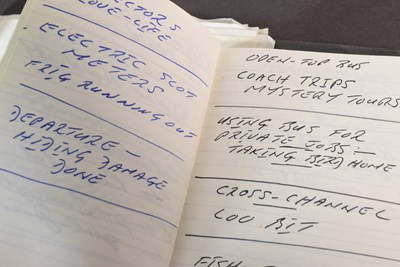 ECTORS
LOVE-LIFE
ELECTRIC SLOT
METERS
FRIG RUNNING OUT
DEPARTURE —
HIDING DAMAGE
DONE
OPEN-TOP BUS
COACH TRIPS
MYSTERY TOURS
USING BUS FOR
PRIVATE JOBS :—
TAKING BIRD HOME
CROSS-CHANNEL
LOO BIT